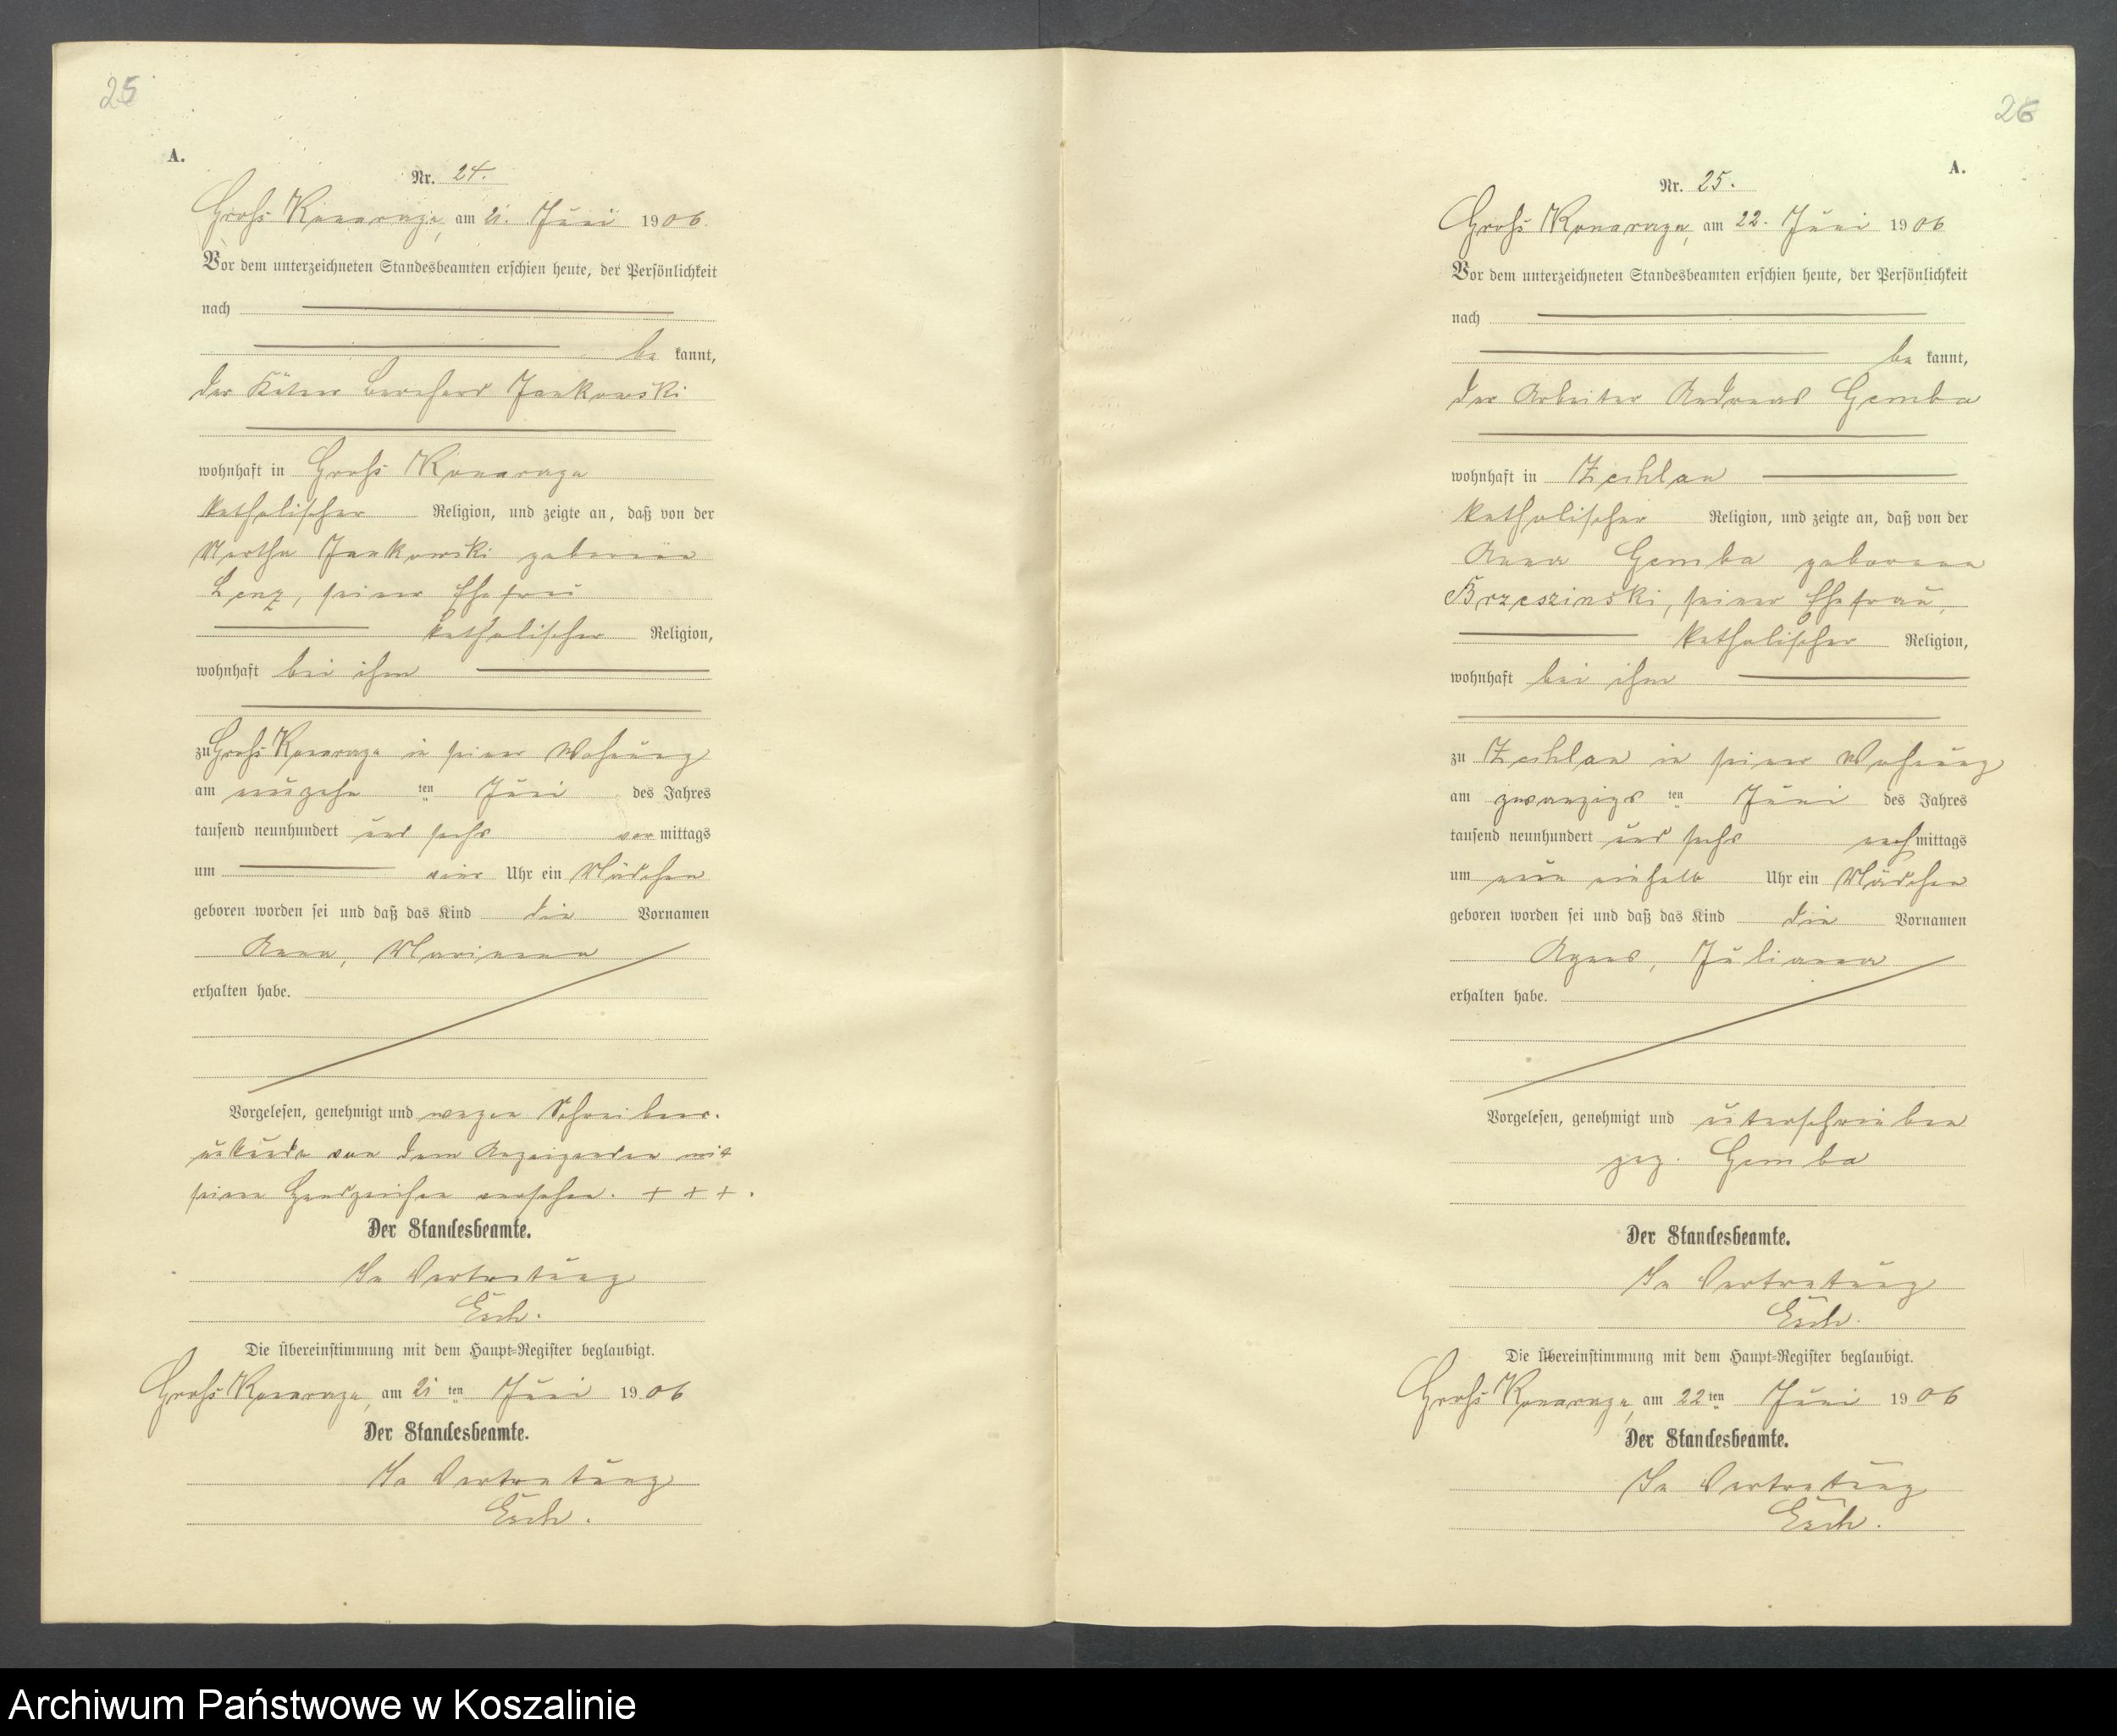 25
A.
Nr. 24.
Groß Konarzyn, am 21. Juni 1906.
Vor dem unterzeichneten Standesbeamten erschien heute, der Persönlichkeit
nach
be kannt,
der Käthner Bernhard Jankowski
wohnhaft in Groß Konarzyn
katholischer Religion, und zeigte an, daß von der
Martha Jankowski geborene
Lenz, seiner Ehefrau
katholischer Religion,
wohnhaft bei ihm
zu Groß Konarzyn in seiner Wohnung
am neunzehn ten Juni des Jahres
tausend neunhundert und sechs vor mittags
um vier Uhr ein Mädchen
geboren worden sei und daß das Kind die Vornamen
Anna, Marianna
erhalten habe.
Vorgelesen, genehmigt und wegen Schreibens-
unkunde von dem Anzeigenden mit
seinen Handzeichen versehen. + + + .
Der Standesbeamte.
In Vertretung
Esch.
Die Übereinstimmung mit dem Haupt-Register beglaubigt.
Groß Konarzyn, am 21 ten Juni 1906
Der Standesbeamte.
In Vertretung
Esch.
26
A.
Nr. 25.
Groß Konarzyn, am 22. Juni 1906
Vor dem unterzeichneten Standesbeamten erschien heute, der Persönlichkeit
nach
be kannt,
der Arbeiter Andreas Gemba
wohnhaft in Zechlau
katholischer Religion, und zeigte an, daß von der
Anna Gemba geborene
Brzeszinski, seiner Ehefrau,
katholischer Religion,
wohnhaft bei ihm
zu Zechlau in seiner Wohnung
am zwanzigs ten Juni des Jahres
tausend neunhundert und sechs nach mittags
um neun einhalb Uhr ein Mädchen
geboren worden sei und daß das Kind die Vornamen
Agnes, Juliana
erhalten habe.
Vorgelesen, genehmigt und unterschrieben
gez. Gemba
Der Standesbeamte.
In Vertretung
Esch.
Die Übereinstimmung mit dem Haupt-Register beglaubigt.
Groß Konarzyn, am 22 ten Juni 1906
Der Standesbeamte.
In Vertretung
Esch.
Archiwum Państwowe w Koszalinie